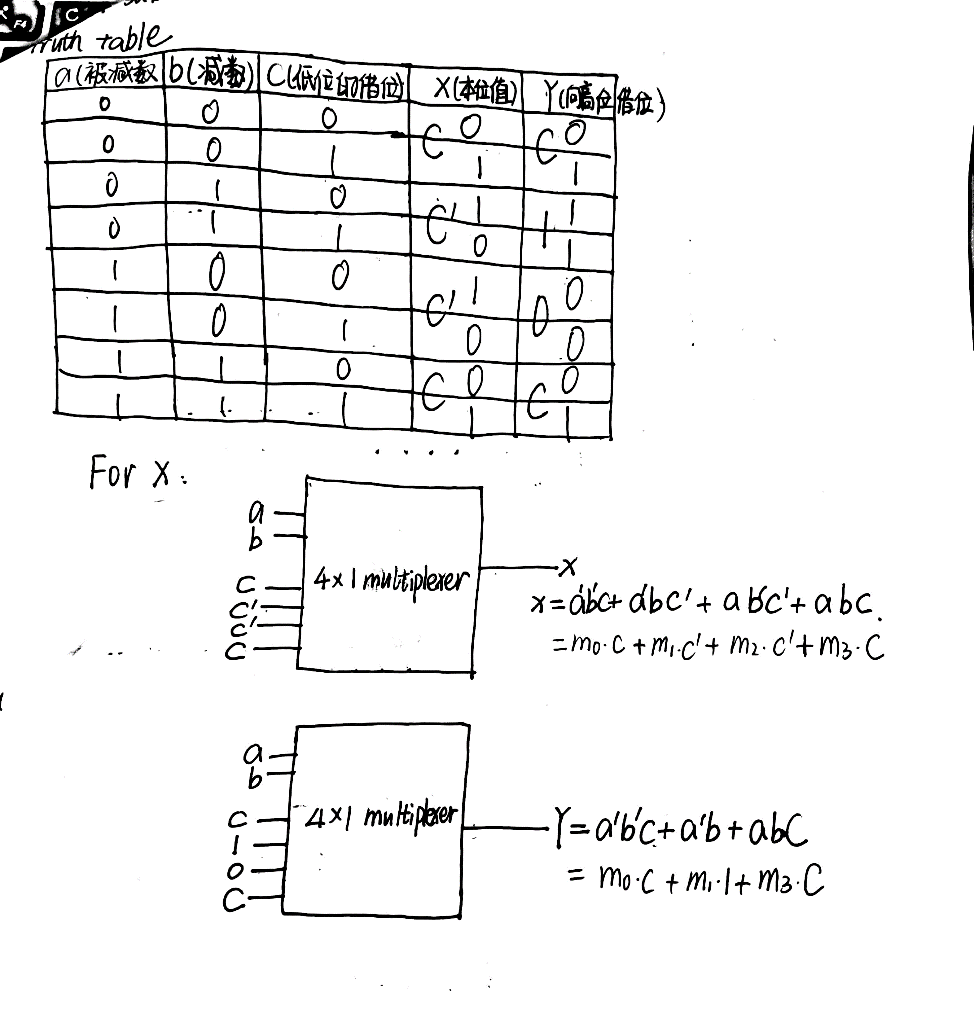 C
F4
Truth table
a(被减数 b(减数) C(低位的借位) X(本位值) Y(向高位借位)
0 0 0 C 0 C 0
0 0 1 1 1
0 1 0 C' 1 1 1
0 1 1 0 1
1 0 0 C' 1 0 0
1 0 1 0 0
1 1 0 C 0 C 0
1 1 1 1 1
For X:
a
b
C
C'
C'
C
4×1 multiplexer
X
X=a'b'c+a'bc'+ab'c'+abc.
=m0·C+m1·C'+m2·C'+m3·C
a
b
C
1
0
C
4×1 multiplexer
Y=a'b'c+a'b+abC
= m0·C+m1·1+m3·C